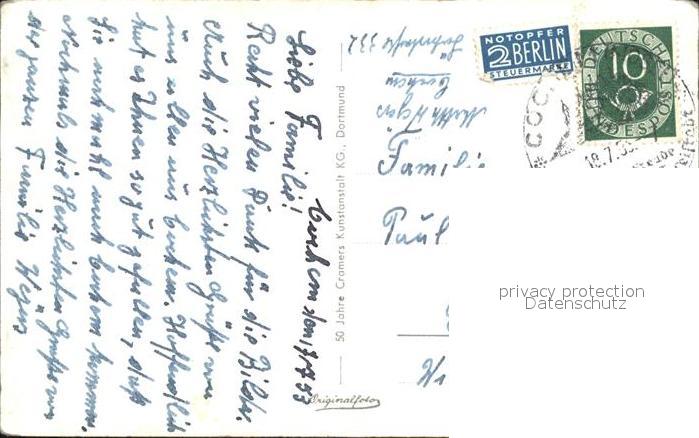 Cochem den 17.7.53
Liebe Familie!
Recht vielen Dank für die Bilder.
Auch die Herzlichsten Grüße von
uns allen aus Cochem. Hoffentlich
hat es Ihnen so gut gefallen, daß
Sie mal nach Cochem kommen.
Nochmals die Herzlichsten Grüße von
der ganzen Familie
50 Jahre Cramers Kunstanstalt KG., Dortmund
Originalfoto
Cochem
NOTOPFER
2 BERLIN
STEUERMARKE
DEUTSCHE
10
BUNDESPOST
COCHEM
Familie
Paul
privacy protection
Datenschutz